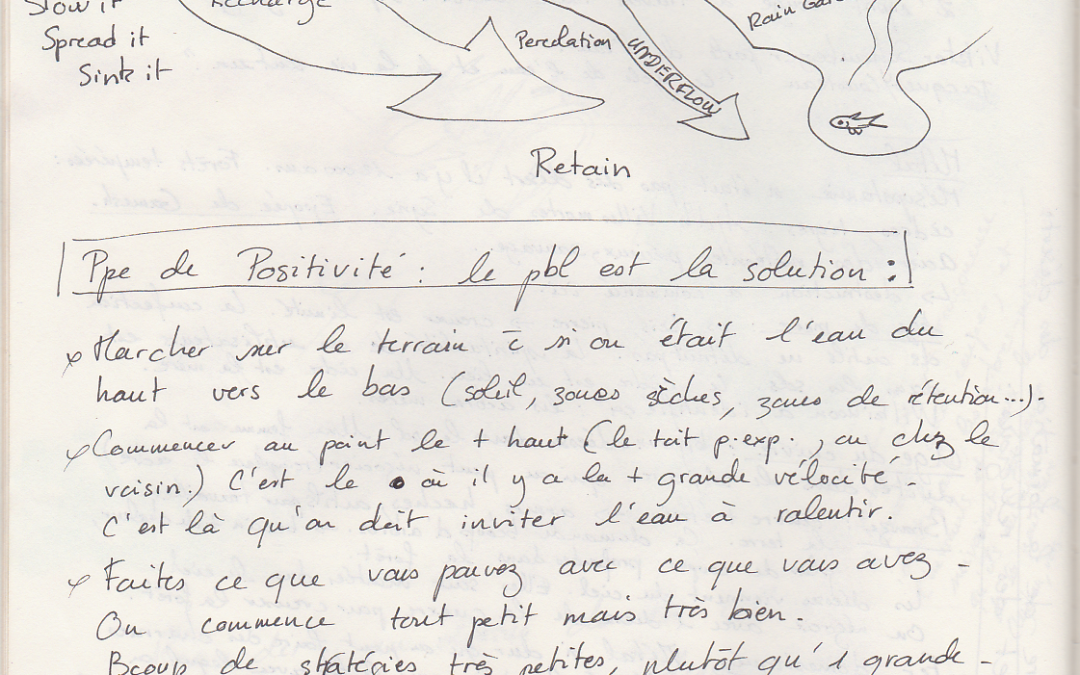 Slow it
Spread it
Sink it
Recharge
Percolation
UNDERFLOW
Rain Gar
Retain
Ppe de Positivité : le pbl est la solution :
Marcher sur le terrain c̄ si on était l'eau du
haut vers le bas (soleil, zones sèches, zones de rétention...).
Commencer au point le + haut (le toit p.exp., ou chez le
voisin.) C'est le • où il y a la + grande vélocité.
C'est là qu'on doit inviter l'eau à ralentir.
Faites ce que vous pouvez avec ce que vous avez -
On commence tout petit mais très bien.
Bcoup de stratégies très petites, plutôt qu'1 grande -